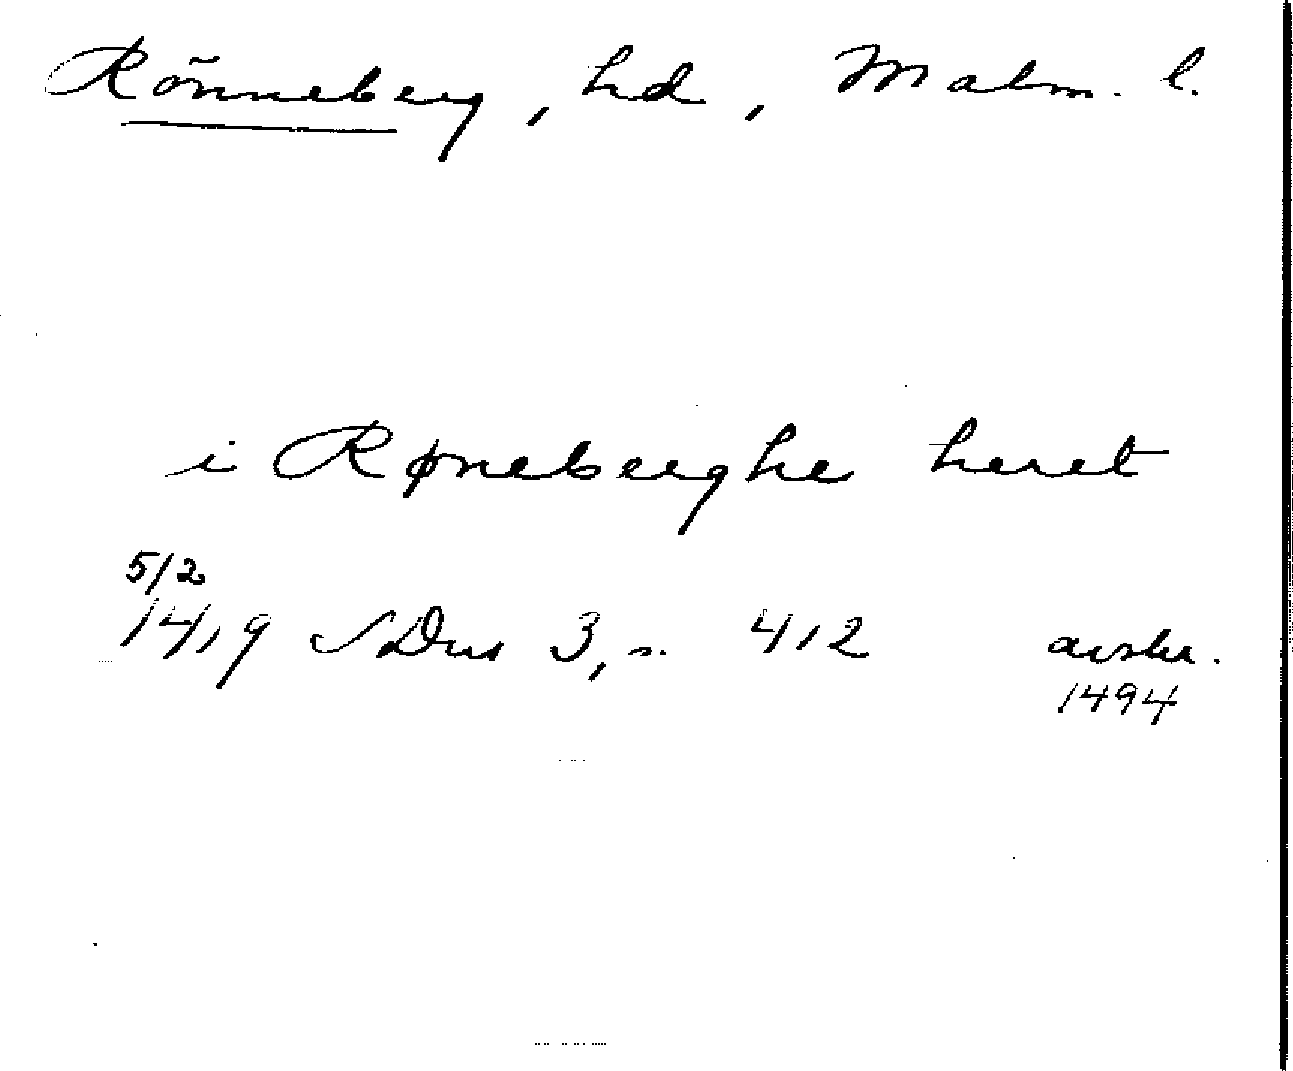 Rönneberg, hd, Malm. l.
i Røneberghe heret
5/2
1419 SDns 3, s. 412 avskr.
1494